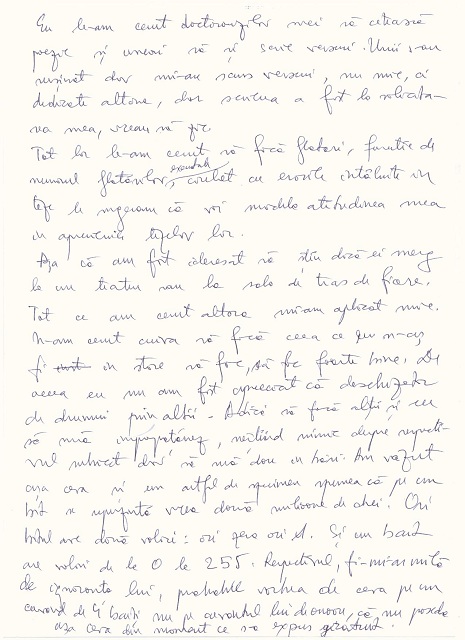 Eu le-am cerut doctoranzilor mei să citească
poezie și uneori să și scrie versuri. Unii s-au
rușinat dar mi-au scris versuri, nu mie, ci
dedicate altora, dar scrierea a fost la solicita-
rea mea, vreau să zic.
Tot lor le-am cerut să facă flotări, funcție de
numărul flotărilor, executate corelat cu erorile întâlnite în
teze le sugeram că voi modela atitudinea mea
în aprecierea tezelor lor.
Așa că am fost interesat să știu dacă ei merg
la un teatru sau la sala de tras de fiare.
Tot ce am cerut altora mi-am aplicat mie.
N-am cerut cuiva să facă ceea ce eu n-aș
fi în stare să fac, să fac foarte bine. De
aceea eu nu am fost apreciat că deschizător
de drumuri prin alții. Adică să facă alții și eu
să mă, neștiind nimic despre respecti-
vul subiect doar să mă dau în bărci. Am văzut
așa ceva și un astfel de specimen spunea că pe un
bit a vrea două milioane de chei. Ori
bitul are două valori: ori zero ori 1. Și un bait
are valori de la 0 la 255. Respectivul, fi-mi-ar milă
de ignoranța lui, probabil vorbea de ceva pe un
cuvânt de 4 baiți nu pe cuvântul lui de onoare, că nu poseda
așa ceva din moment ce s-a expus